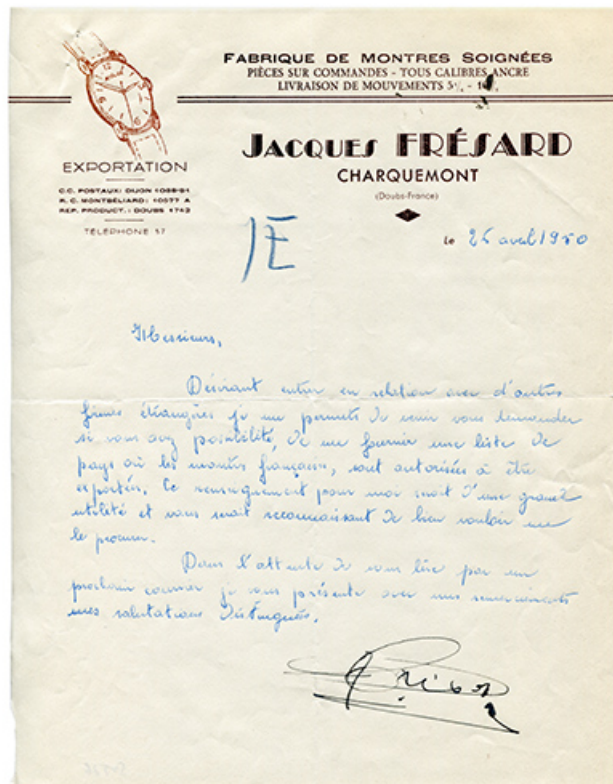 FABRIQUE DE MONTRES SOIGNÉES
PIÈCES SUR COMMANDES - TOUS CALIBRES ANCRE
LIVRAISON DE MOUVEMENTS 5
EXPORTATION
C.C. POSTAUX: DIJON 1088-91
R.C. MONTBÉLIARD: 10077 A
REP. PRODUCT.: DOUBS 1742
TÉLÉPHONE 57
JACQUES FRÉSARD
CHARQUEMONT
(Doubs-France)
le 25 avril 1950
Messieurs,
Désirant entrer en relation avec d'autres
firmes étrangères je me permets de venir vous demander
si vous avez possibilité, de me fournir une liste de
pays où les montres françaises, sont autorisées à être
exportées. Ce renseignement pour moi serait d'une grande
utilité et vous serait reconnaissant de bien vouloir me
le procurer.
Dans l'attente de vous lire par un
prochain courrier je vous présente avec mes remerciements
mes salutations distinguées.